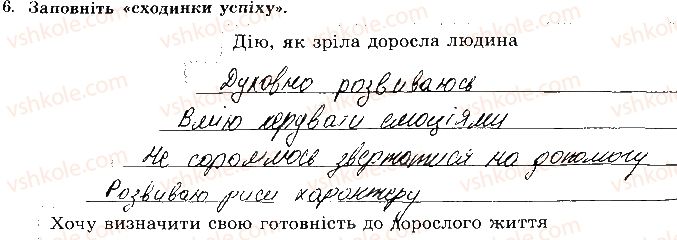 6. Заповніть «сходинки успіху».
Дію, як зріла доросла людина
Духовно розвиваюсь
Вмію керувати емоціями
Не соромлюсь звертатися на допомогу
Розвиваю риси характеру
Хочу визначити свою готовність до дорослого життя